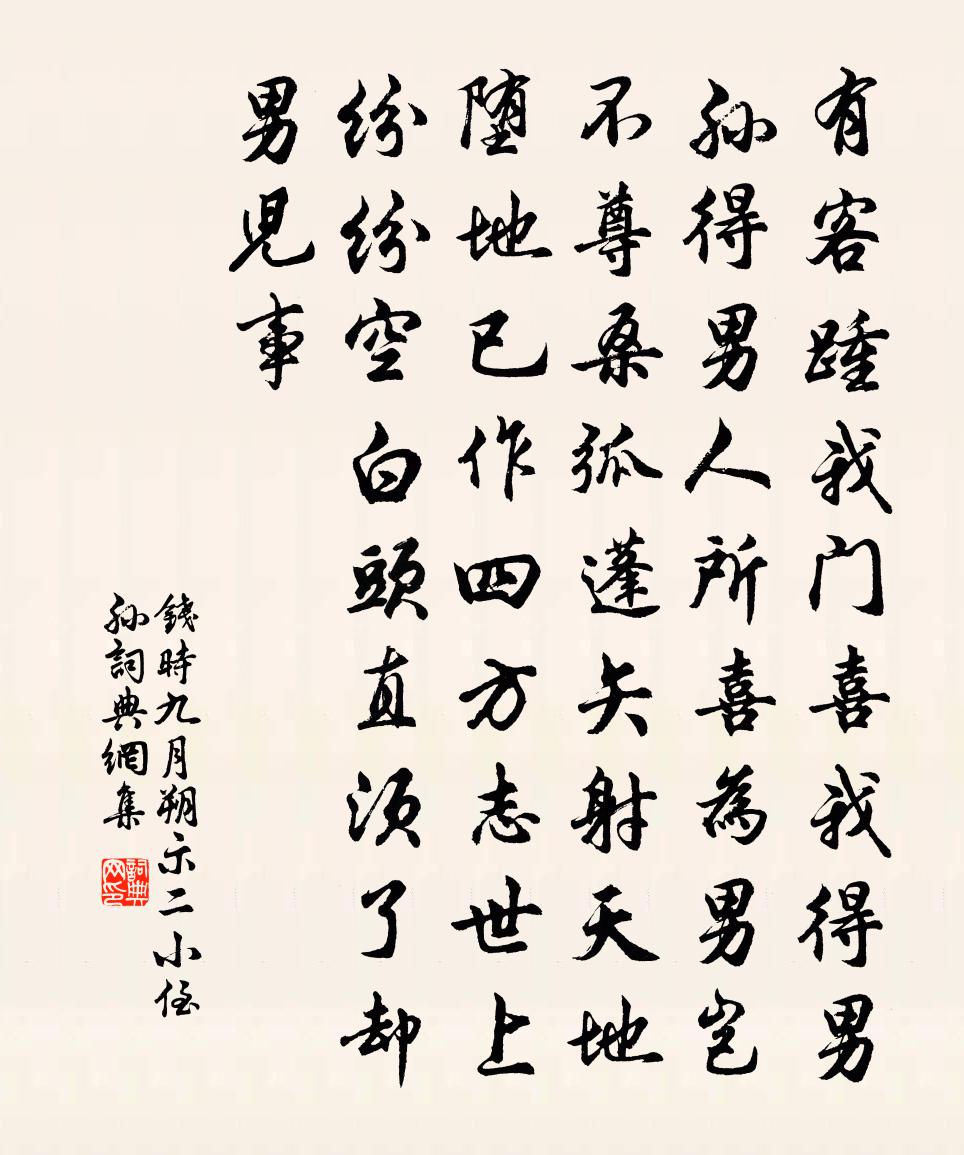 有客踵我门喜我得男
孙得男人所喜為男岂
不尊桑弧蓬矢射天地
堕地已作四方志世上
纷纷空白頭直須了却
男児事
錢時九月朔示二小侄
孙詞典網集
詞典网印